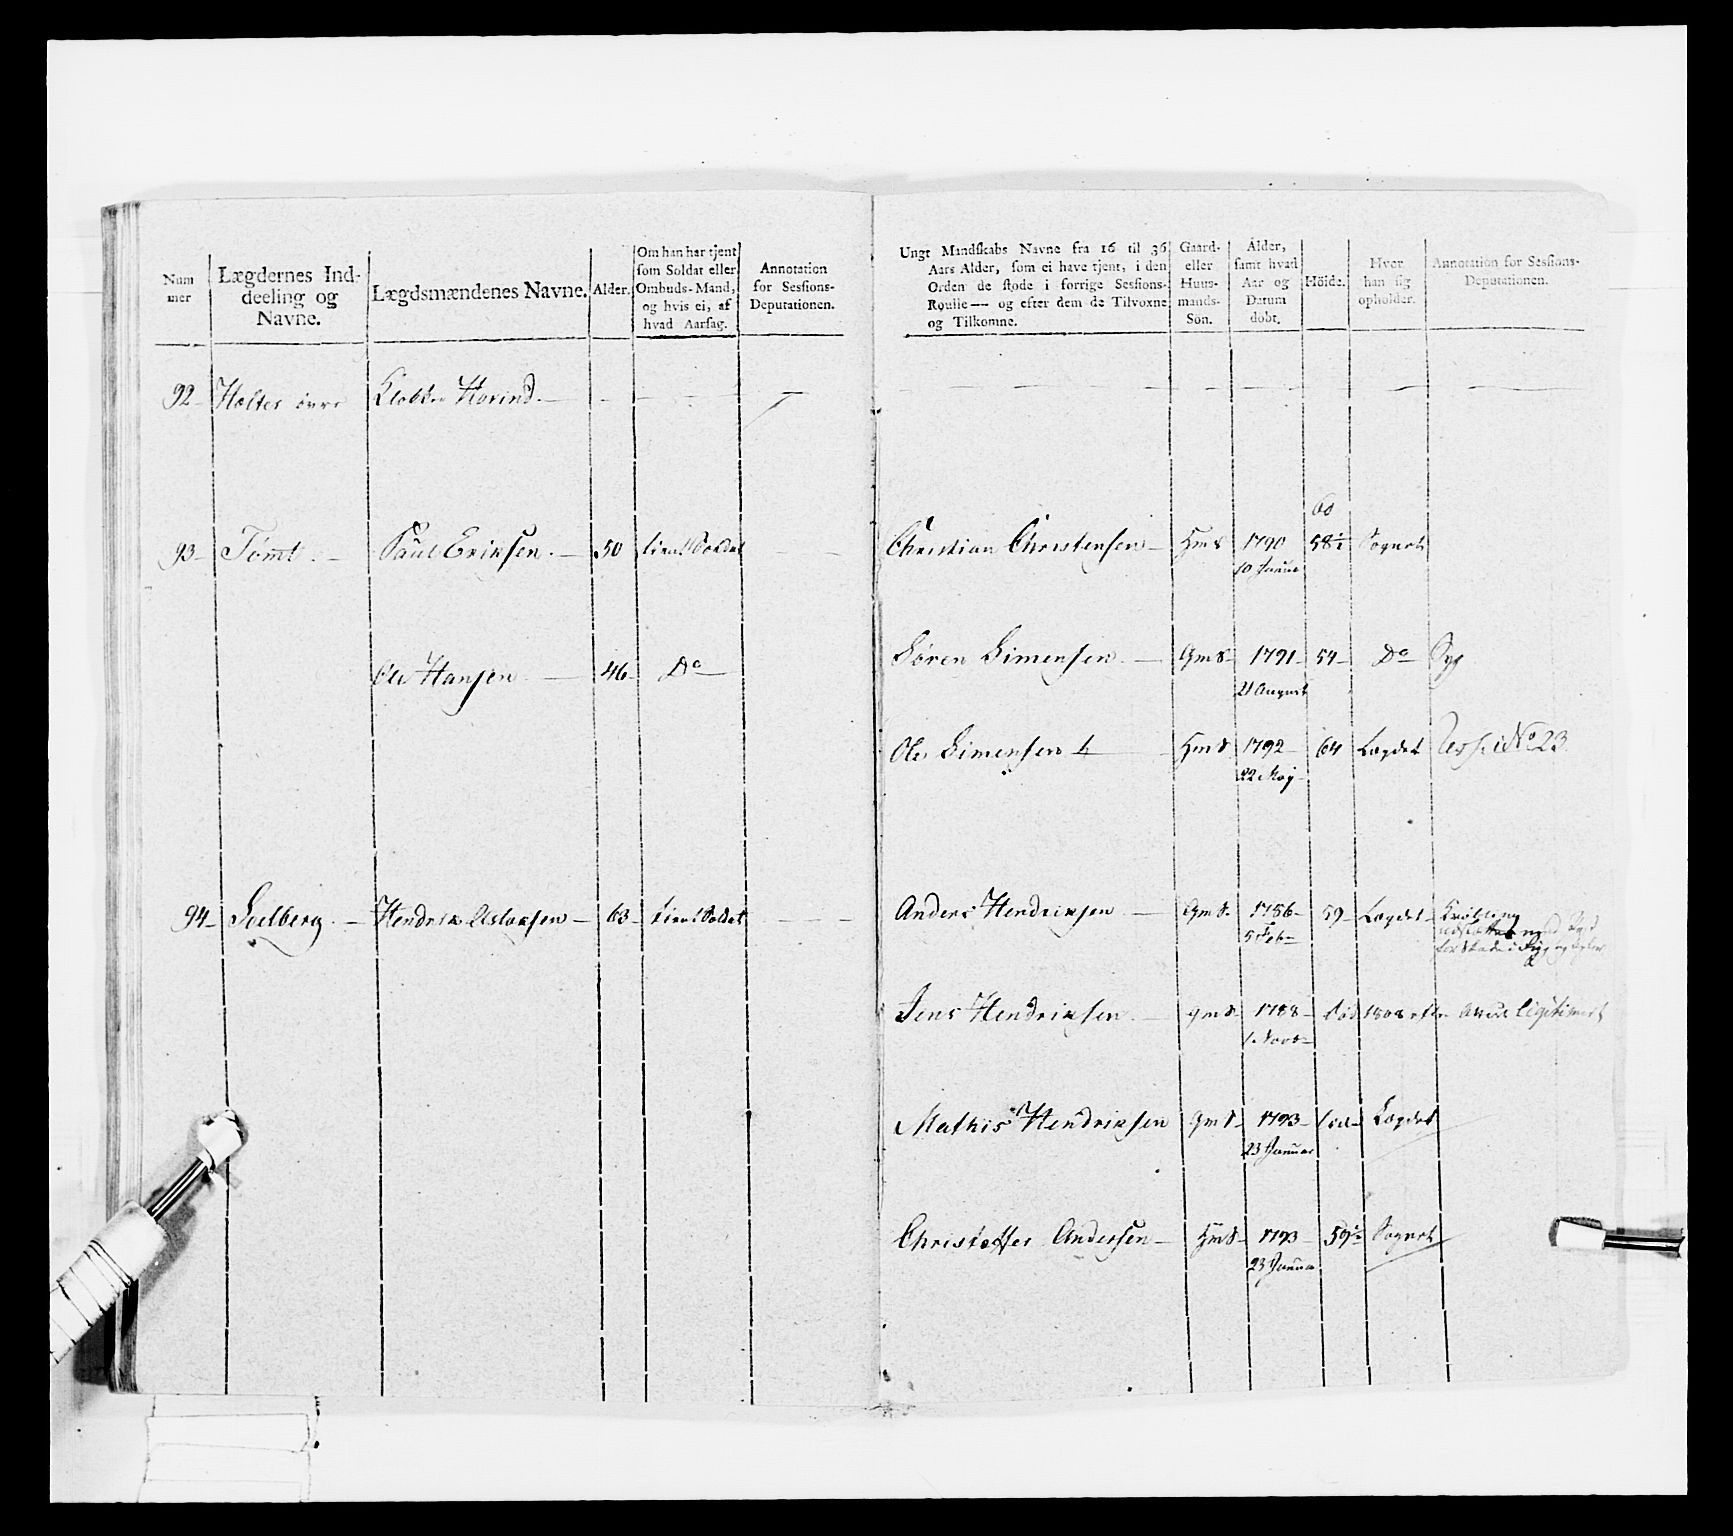 Num
mer
Lægdernes Ind-
deeling og
Navne.
Lægdsmændenes Navne.
Alder.
Om han har tjent
som Soldat eller
Ombuds-Mand,
og hvis ei, af
hvad Aarsag.
Annotation
for Sessions-
Deputationen.
Ungt Mandskabs Navne fra 16 til 36
Aars Alder, som ei have tjent, i den
Orden de stode i forrige Sessions-
Roulle — og efter dem de Tilvoxne
og Tilkomne.
Gaard-
eller
Huus-
mands-
Sön.
Alder,
samt hvad
Aar og
Datum
dobt.
Höide.
Hvor
han sig
opholder.
Annotation for Sessions-
Deputationen.
92 Holter Hovind
60
93 Tømt Paul Eriksen 50 Soldat Christian Christensen HmS 1790 58½ Sognet
10 Janua
Ole Hansen 46 Do Søren Simensen GmS 1791 54 Do Syg
21 August
Ole Simensen HmS 1792 64 Lægdet No 23
22 May
94 Soelberg Hendrik Aslaksen 63 Soldat Anders Hendriksen GmS 1786 59 Lægdet
5 Feb
Jens Hendriksen GmS 1788 1808 Legitimert
1 Novb
Mathis Hendriksen GmS 1793 Lægdet
23 Januar
Christoffer Andersen HmS 1793 59½ Sognet
23 Janua